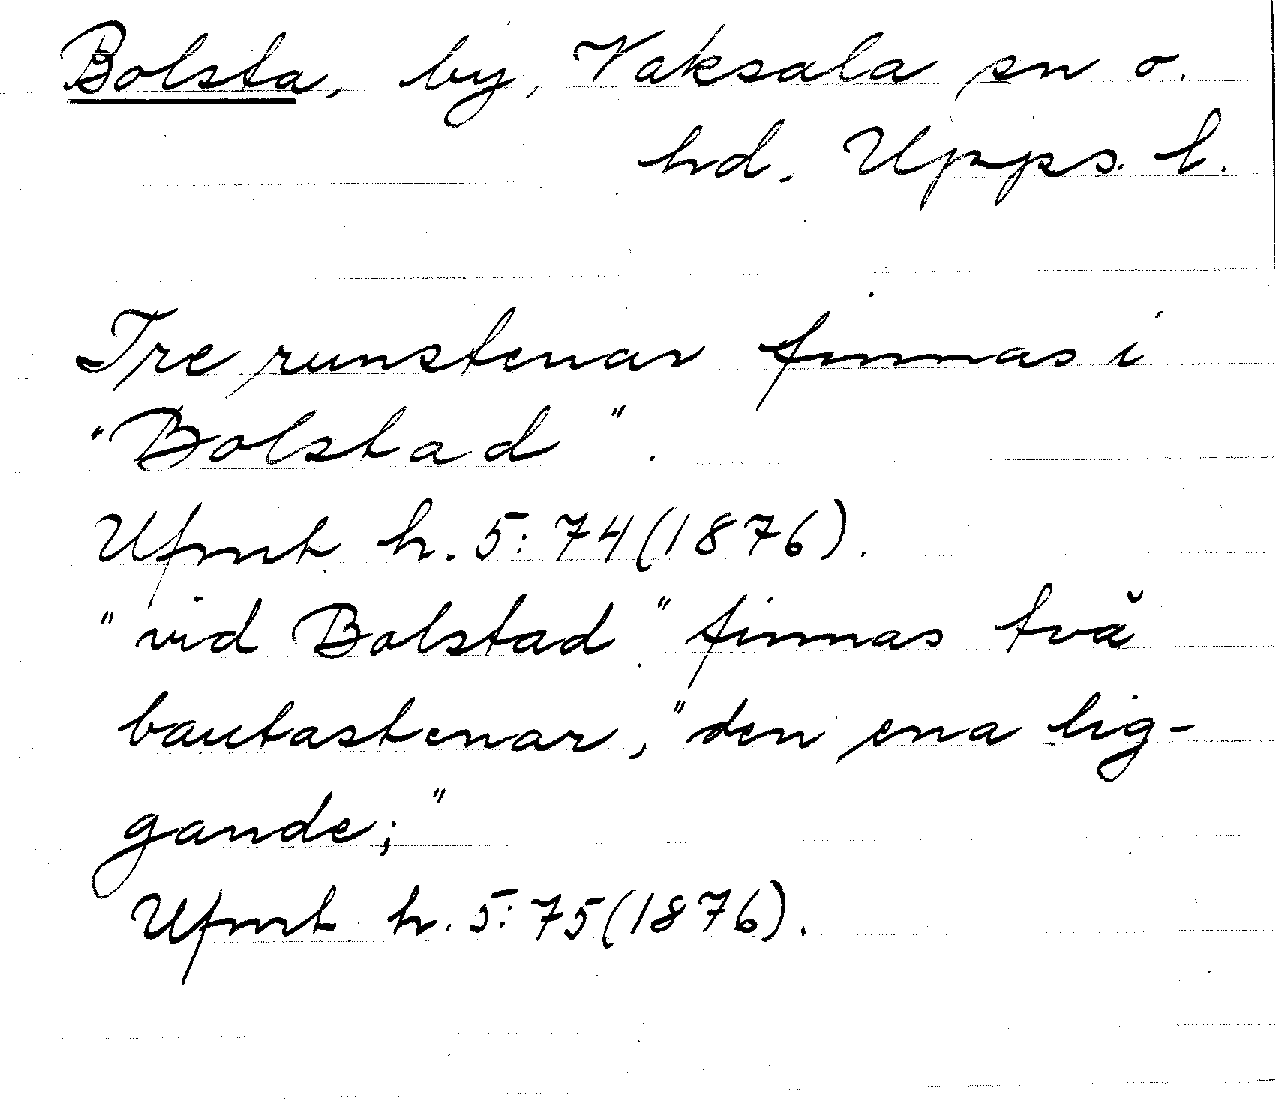 Bolsta, by, Vaksala sn o.
hd. Upps. l.
Tre runstenar finnas i
"Bolstad".
Ufmt h. 5: 74 (1876).
"vid Bolstad" finnas två
bautastenar, "den ena lig-
gande;"
Ufmt h. 5: 75 (1876).